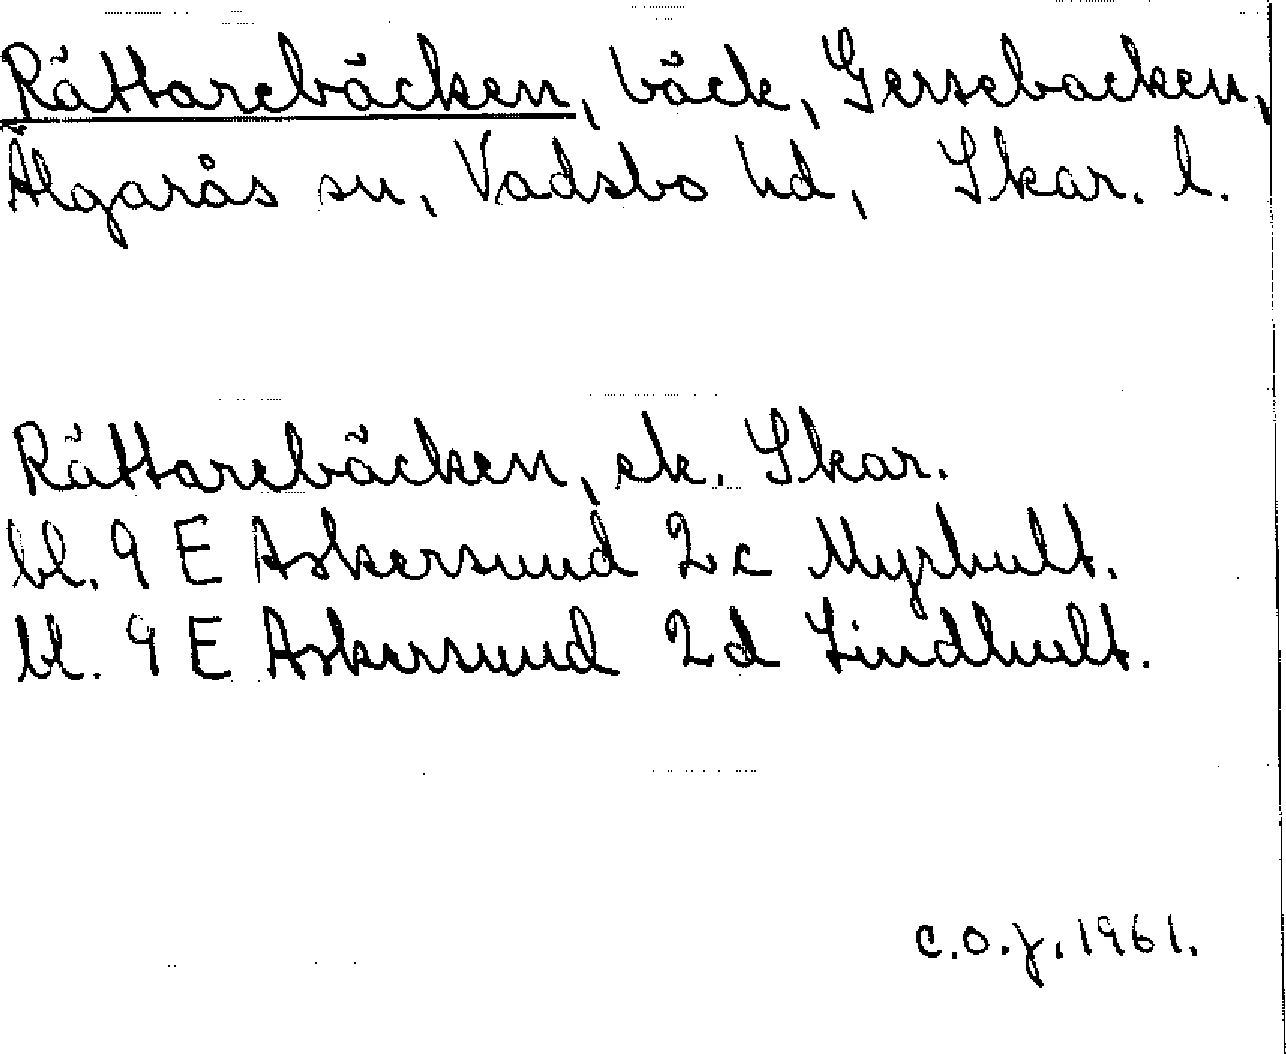 Rättarebäcken, bäck, Gersebacken,
Älgarås sn, Vadsbo hd, Skar. l.
Rättarebäcken, ek. Skar.
bl. 9 E Askersund 2c Myrhult.
bl. 9 E Askersund 2d Lindhult.
C.O.J. 1961.